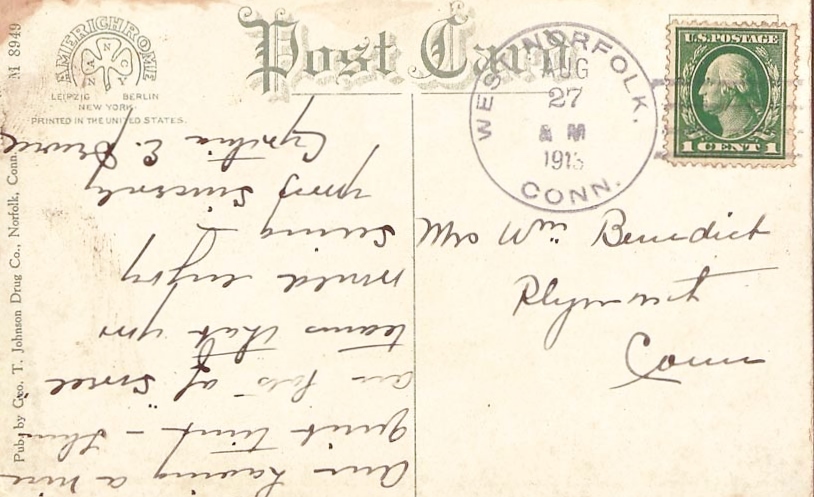 M 8949
AMERICHROME
NANCY
LEIPZIG BERLIN
NEW YORK.
PRINTED IN THE UNITED STATES.
Post Card
WEST NORFOLK,
AUG
27
A M
1913
CONN.
U.S. POSTAGE
1 CENT 1
Mrs Wm Benedict
Plymouth
Conn
Am having a nice
quiet time - there
are lots of
teams that you
would enjoy
seeing -
Yours Sincerely
Cynthia E.
Pub. by Geo. T. Johnson Drug Co., Norfolk, Conn.